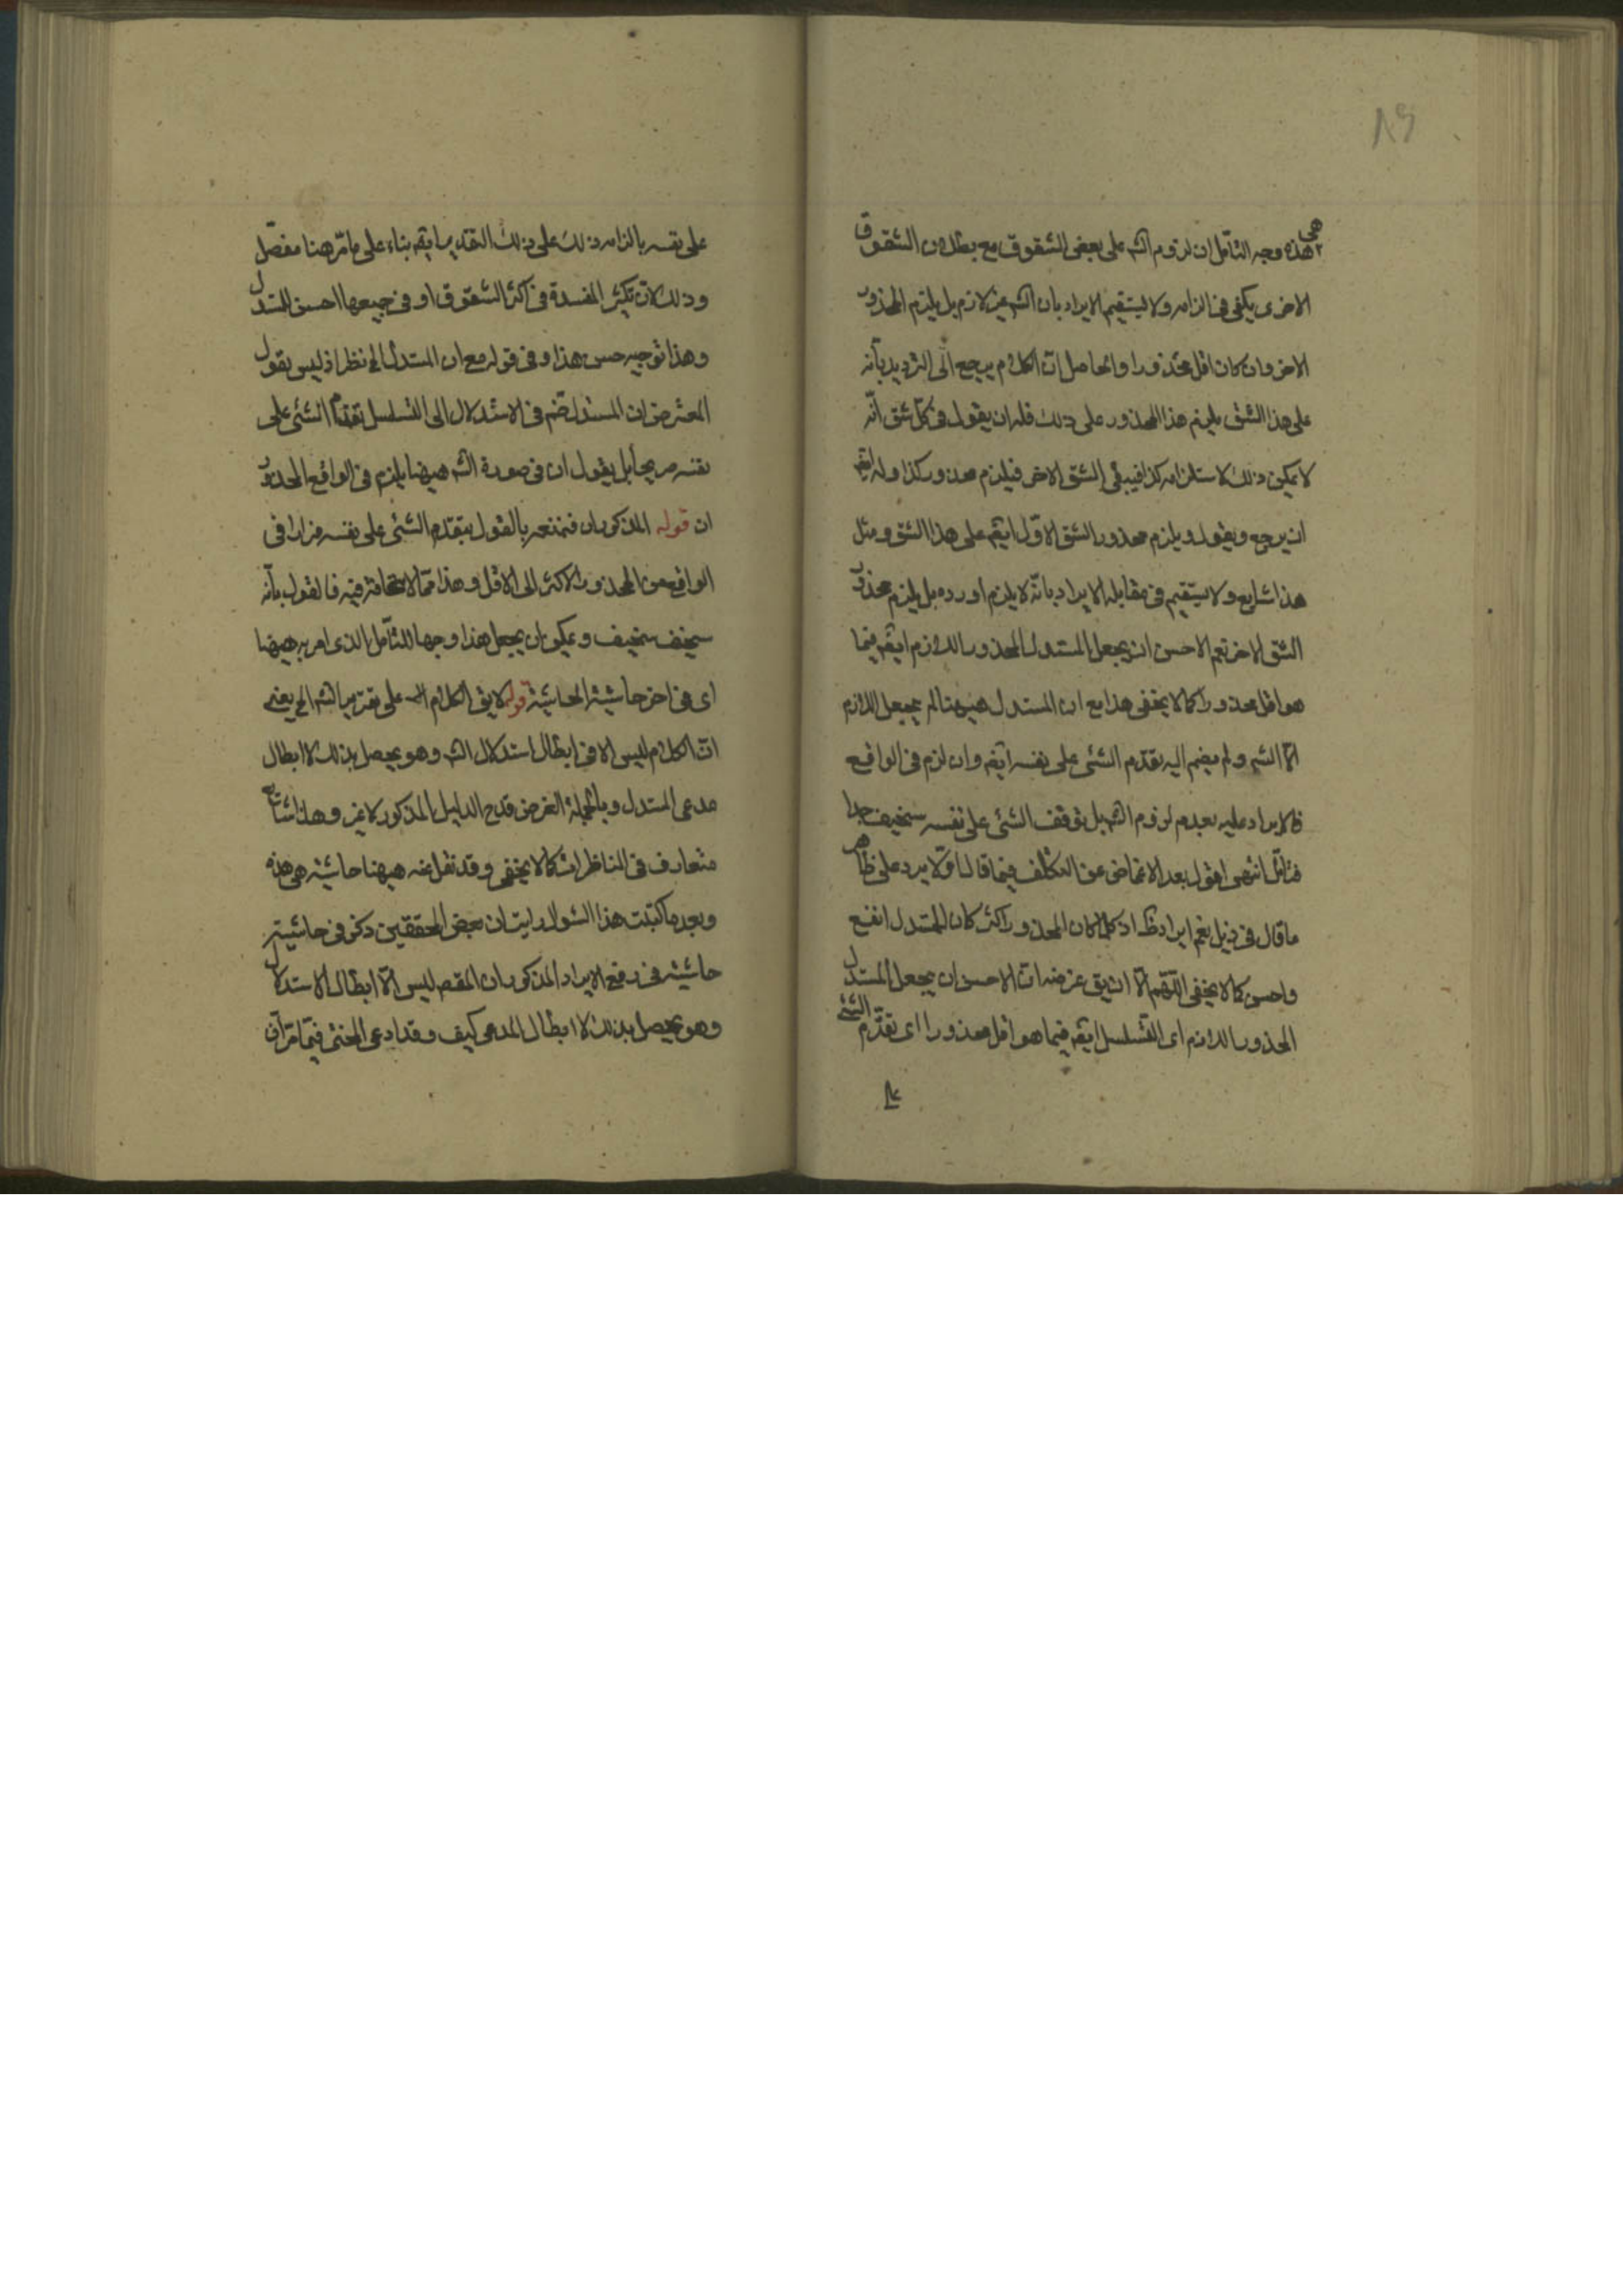 ٨٩
هى
هذه وجه التأمل ان لزوم التس على بعض الشقوق مع بطلان الشقوق
الاخرى يكفى فى الزامه ولا يستقيم الايراد بان التس غير لازم بل يلزم المحذور
الاخر وان كان اقل محذورا والحاصل ان الكلام يرجع الى الترديد بأنه
على هذا الشق يلزم هذا المحذور على ذلك فله ان يقول فى كل شق انه
لا يمكن ذلك لاستلزامه كذا فيبقى الشق الاخر فيلزم محذور كذا وله ايضا
ان يرجع ويقول ويلزم محذور الشق الاول ايضم على هذا الشق ومثل
هذا شايع ولا يستقيم فى مقابله الايراد بانه لا يلزم اورده بل يلزم محذور
الشق الاخر نعم الاحسن ان يجعل المستدل المحذور اللازم ايضم فيما
هو اقل محذورا كما لا يخفى هذا مع ان المستدل هيهنا لم يجعل اللازم
الا التس ولم يضم اليه تقدم الشئ على نفسه ايضم وان لزم فى الواقع
فالايراد عليه بعدم لزوم التس بل توقف الشئ على نفسه سخيف جدا
فتأمل انتهى اقول بعد الاغماض عن التكلف فيما قال اولا يرد على ظاهر
ما قال فى ذيل نعم ايراد ظ اذ كلما كان المحذور اكثر كان للمستدل انفع
واحسن كما لا يخفى اللهم الا ان يق غرضه ان الاحسن ان يجعل المستدل
المحذور اللازم اى التسلسل ايضم فيما هو اقل محذورا اى تقدم الشئ
على نفسه بالزامه ذلك على ذلك التقدير ايضم بناء على ما مر هنا مفصل
وذلك لان تكثر المفسدة فى اكثر الشقوق او فى جميعها احسن للمستدل
وهذا توجيه حسن هذا وفى قوله مع ان المستدل الخ نظر اذ ليس يقول
المعترض ان المستدل ضم فى الاستدلال الى التسلسل تقدم الشئ على
نفسه صريحا بل يقول ان فى صورة التس هيهنا يلزم فى الواقع المحذور
ان قوله المذكوران فمنعه بالقول بتقدم الشئ على نفسه فرارا فى
الواقع من المحذور الاكثر الى الاقل وهذا مما لا سخافة فيه فالقول بأنه
سخيف سخيف ويمكن ان يجعل هذا وجها للتأمل الذى امر به هيهنا
اى فى اخر حاشية الحاشية قوله لا يق الكلام على تقدير التس الخ يعنى
ان الكلام ليس الا فى ابطال استدلال الش وهو يحصل بذلك لا ابطال
مدعى المستدل وبالجملة الغرض قدح الدليل المذكور لا غير وهذا شايع
متعارف فى المناظرات كما لا يخفى وقد نقل عنه هيهنا حاشية هى هذه
وبعد ما كتبت هذا السؤال رايت ان بعض المحققين ذكر فى حاشيته
حاشية فى رفع الايراد المذكور ان المقصد ليس الا ابطال الاستدلال
وهو يحصل بذلك لا ابطال المدعى كيف وقد ادعى المحشى فيما مر آن